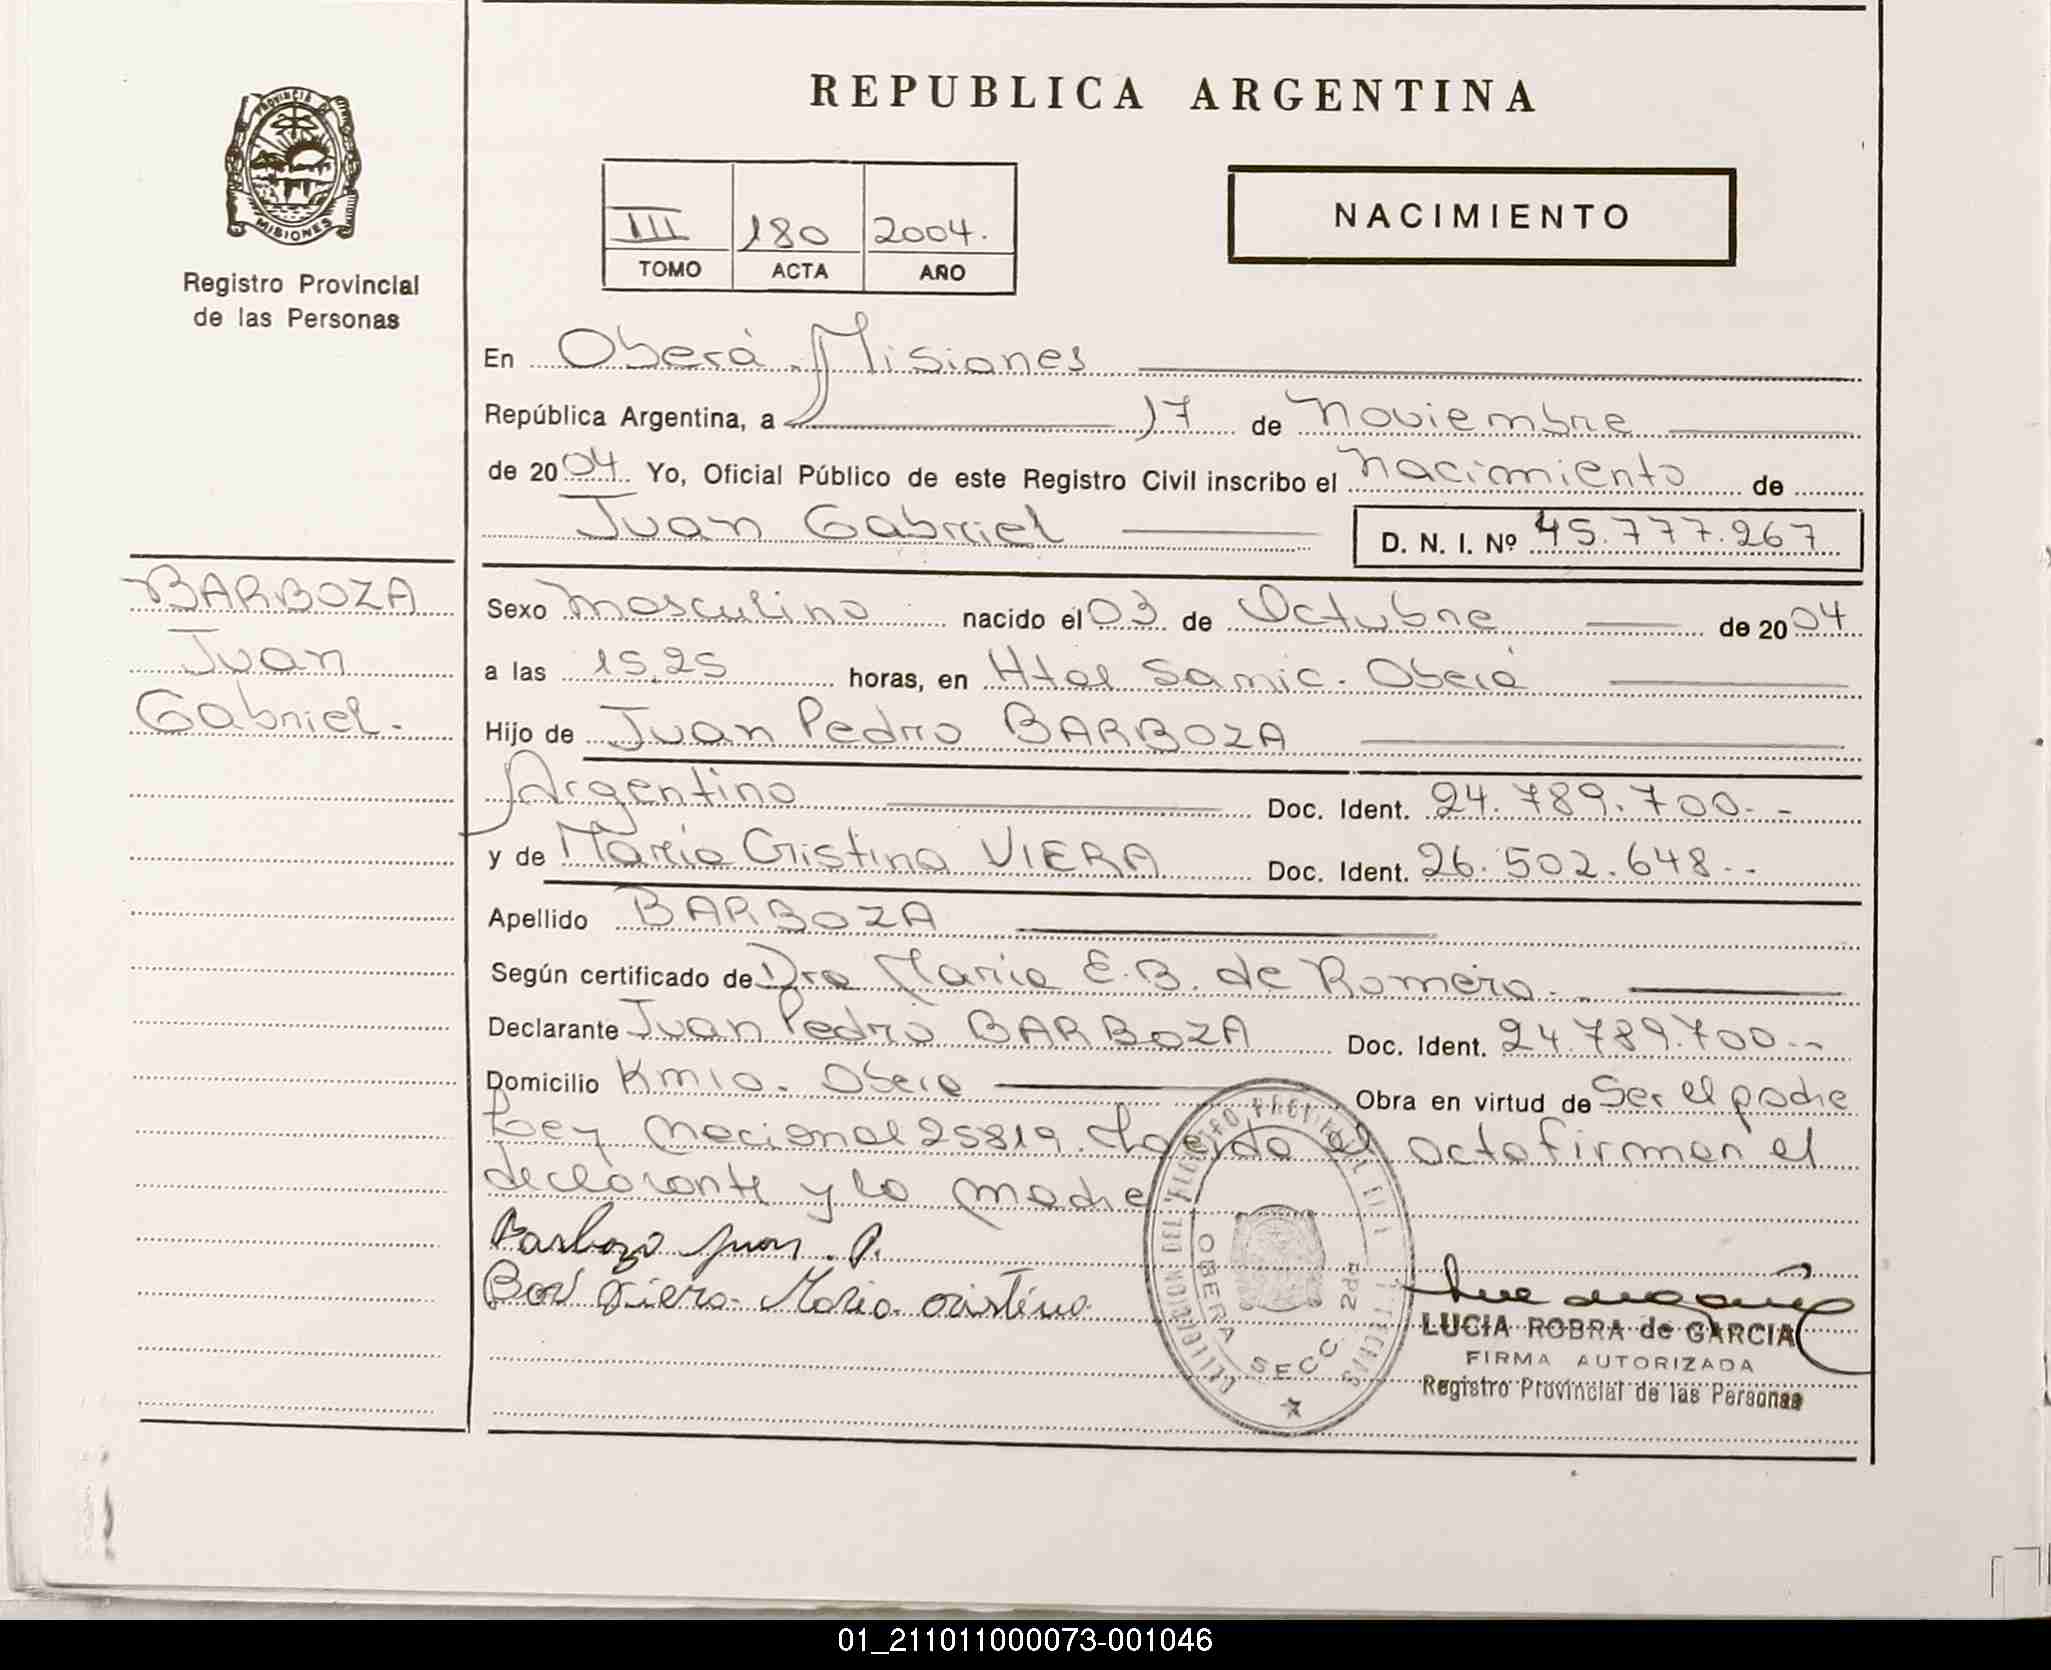 REPUBLICA ARGENTINA
PROVINCIA DE
MISIONES
Registro Provincial
de las Personas
III 180 2004.
TOMO ACTA AÑO
NACIMIENTO
En Oberá. Misiones
República Argentina, a 17 de Noviembre
de 2004 Yo, Oficial Público de este Registro Civil inscribo el nacimiento de
Juan Gabriel D. N. I. Nº 45.777.267
BARBOZA
Juan
Gabriel.
Sexo masculino nacido el 03 de Octubre de 2004
a las 15,25 horas, en Htal Samic. Oberá
Hijo de Juan Pedro BARBOZA
Argentino Doc. Ident. 24.789.700.-
y de María Cristina VIERA Doc. Ident. 26.502.648.-
Apellido BARBOZA
Según certificado de Dra María E.B. de Romero.
Declarante Juan Pedro BARBOZA Doc. Ident. 24.789.700.-
Domicilio Km 10. Oberá Obra en virtud de Ser el padre
Ley Nacional 25819. Leída el acta firman el
declarante y la madre
Barboza Juan. P.
Viera Maria cristina
OBERA SECC. 2da
LUCIA ROBRA de GARCIA
FIRMA AUTORIZADA
Registro Provincial de las Personas
01_211011000073-001046